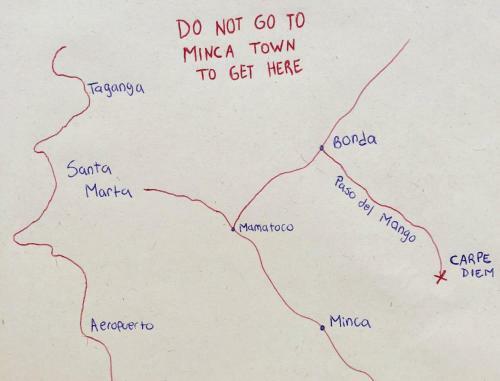 DO NOT GO TO
MINCA TOWN
TO GET HERE
Taganga
Santa
Marta
Bonda
Paso del Mango
Mamatoco
CARPE
DIEM
Aeropuerto
Minca